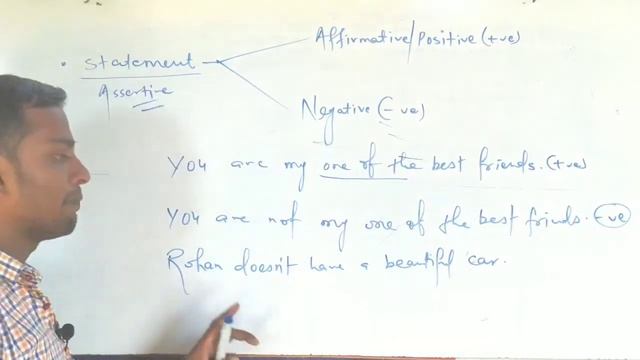 Affirmative/Positive (+ve)
• Statement
Assertive
Negative (-ve)
You are my one of the best friends. (+ve)
You are not my one of the best friends. -ve
Rohan doesn't have a beautiful car.